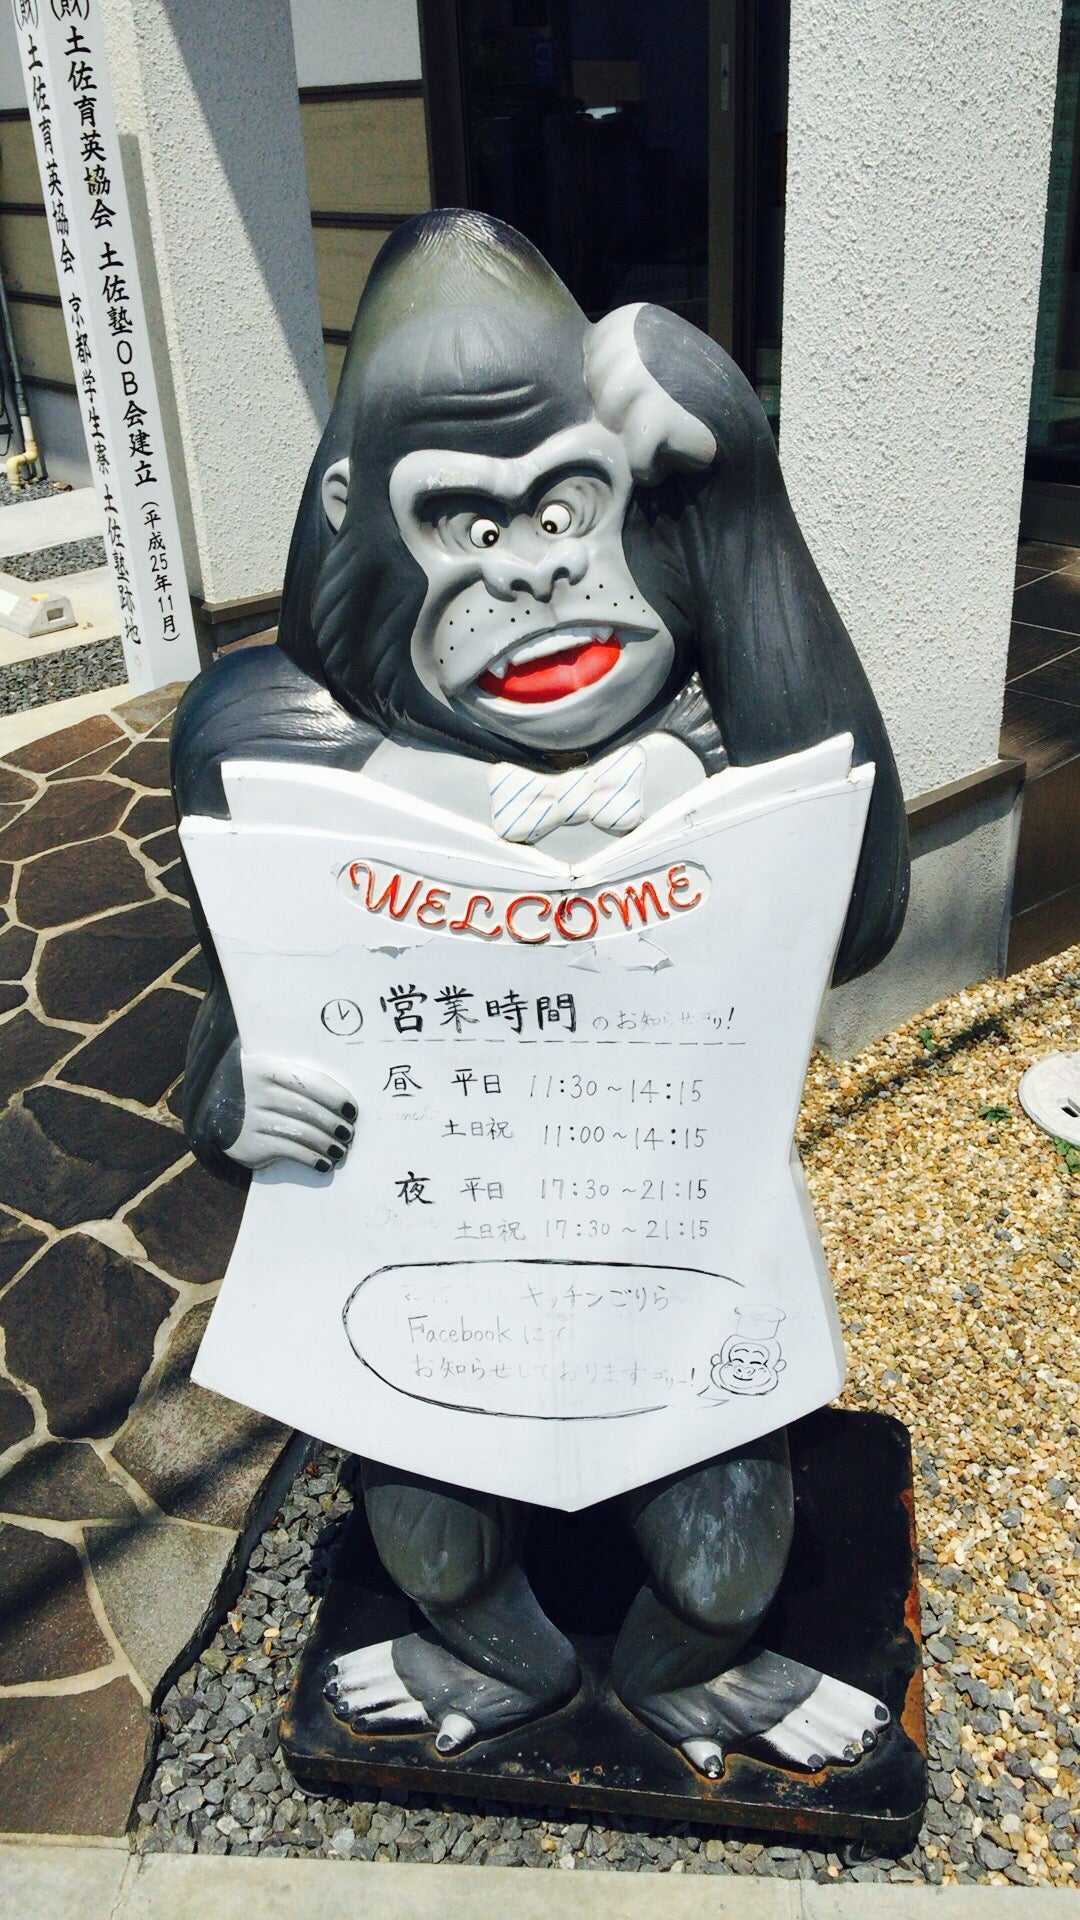 (財)土佐育英協会 土佐塾OB会建立(平成25年11月)
(財)土佐育英協会 京都学生寮 土佐塾跡地
WELCOME
営業時間のお知らせゴリ!
昼 平日 11:30～14:15
Lunch
土日祝 11:00～14:15
夜 平日 17:30～21:15
Dinner
土日祝 17:30～21:15
キッチンごりら
Facebookにて
お知らせしておりますゴリ～!